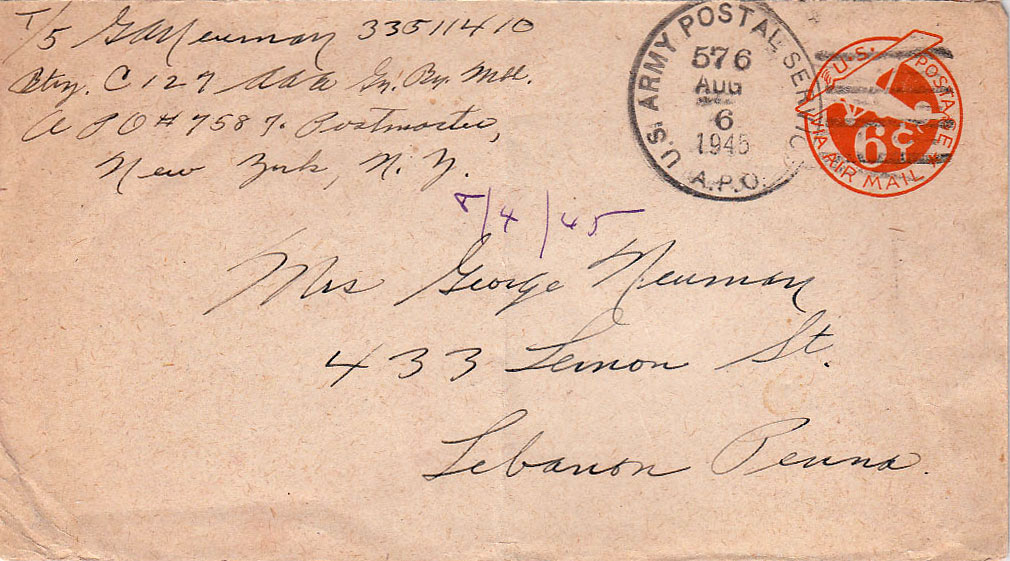 T/5 G A Neuman 33511410
Btry. C 127 AAA Gn. Bn. Mbl.
A P O # 7587. Postmaster,
New York, N. Y.
U.S. ARMY POSTAL SERVICE
576
AUG
6
1945
A.P.O.
U.S. POSTAGE
6¢
VIA AIR MAIL
8/4/45
Mrs George Neuman
433 Lemon St.
Lebanon Penna.